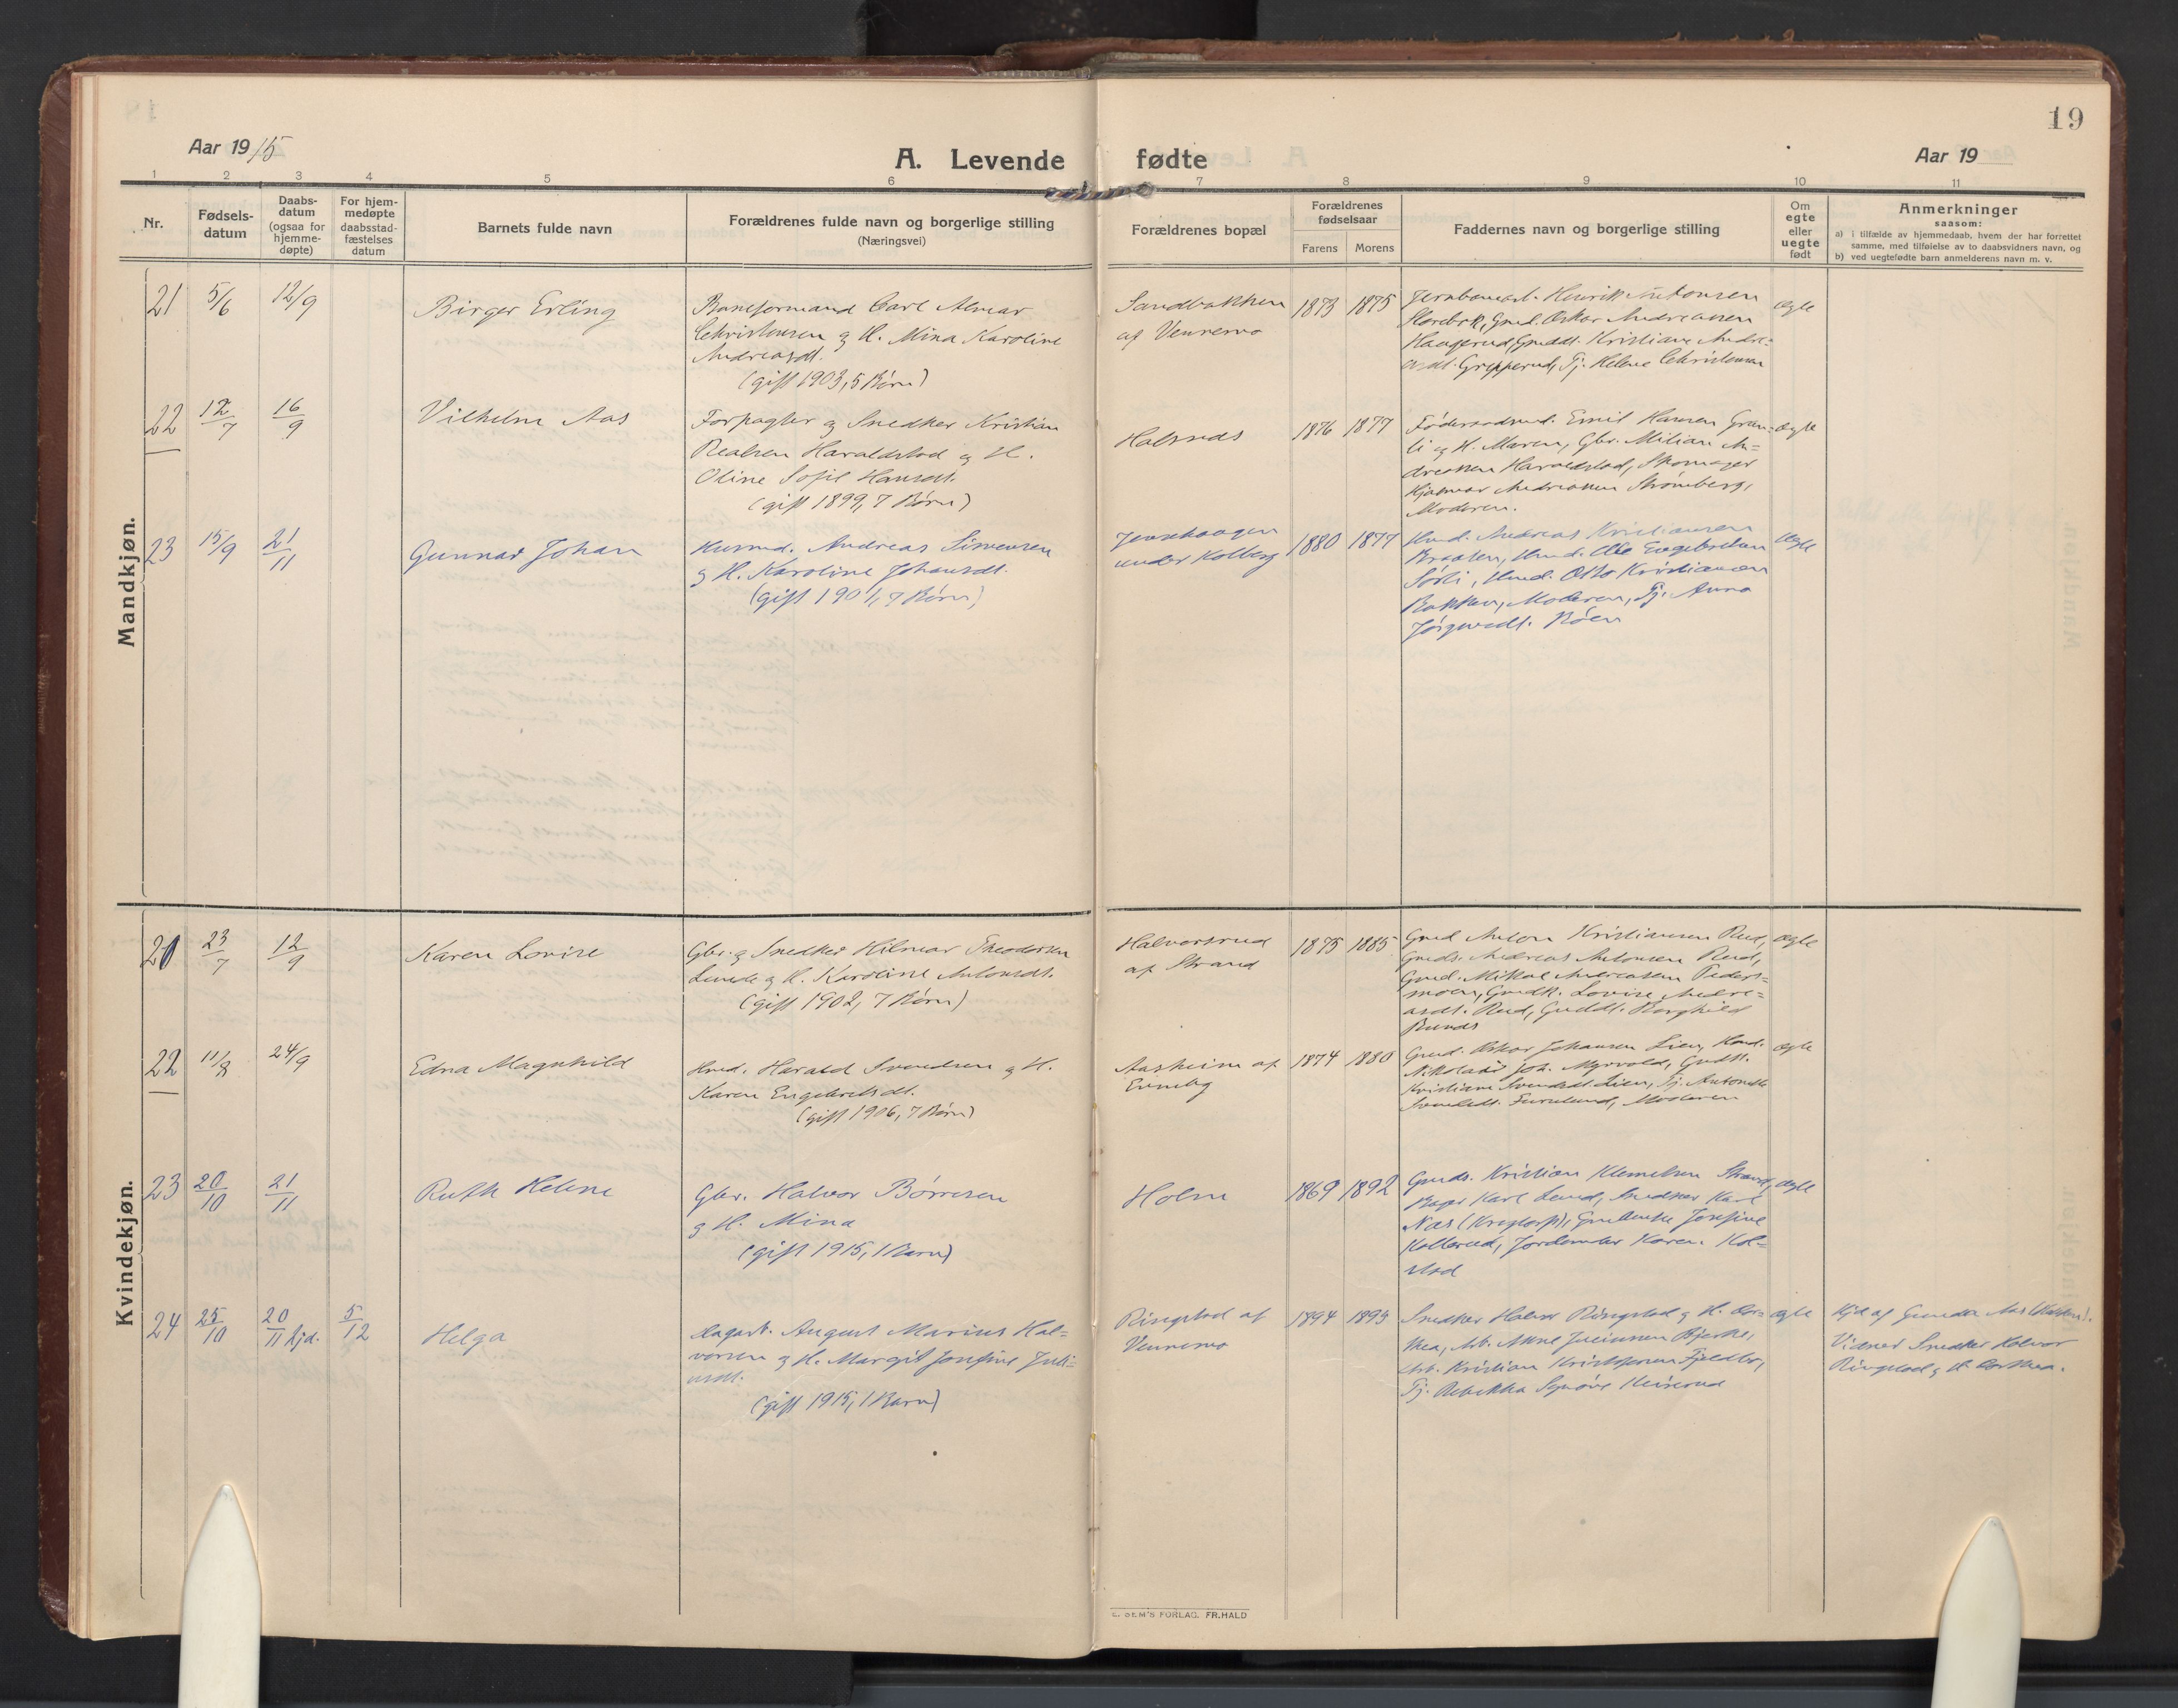 19
Aar 1915
A. Levende fødte
Aar 19
1 2 3 4 5 6 7 8 9 10 11
Nr.
Fødsels-
datum
Daabs-
datum
(ogsaa for
hjemme-
døpte)
For hjem-
medøpte
daabsstad-
fæstelses
datum
Barnets fulde navn
Forældrenes fulde navn og borgerlige stilling
(Næringsvei)
Forældrenes bopæl
Forældrenes
fødselsaar
Farens Morens
Faddernes navn og borgerlige stilling
Om
egte
eller
uegte
født
Anmerkninger
saasom:
a) i tilfælde av hjemmedaab, hvem der har forrettet
samme, med tilføielse av to daabsvidners navn, og
b) ved uegtefødte barn anmelderens navn m. v.
Mandkjøn.
21 5/6 12/9
Birger Erling
Baneformand Carl Almar
Christensen & H. Mina Karoline
Andreasdt.
(gift 1903, 5 Børn)
Sandbakken
af Vennevo
1873 1875
Henrik Antonsen
Gmd. Oskar Andreassen
Haugerud, Kristiane Andre-
asdt. Grypperud, Tj. Helene Christensen
Ægte
22 12/7 16/9
Vilhelm Aas
Forpagter og Snedker Kristian
Haraldstad og H.
Oline Sofie Hansdt.
(gift 1899, 7 Børn)
Halsnæs
1876 1877
Føderaadsmd. Emil Hansen Gran-
li og H. Maren, Gbr. Milian An-
dreassen Haraldstad, Skomager
Hjalmar Andreassen Strømberg,
Moderen.
Ægte
23 15/9 21/11
Gunnar Johan
Husmd. Andreas Simensen
& H. Karoline Johansdt.
(gift 1901, 7 Børn)
Jensehaugen
under Kolberg
1880 1877
Hmd. Andreas Kristiansen
Braaten, Hmd. Ole Engebretsen
Sørli, Hmd. Otto Kristiansen
Bakken, Moderen, Tj. Anna
Jørgensdt. Røen
Ægte
Kvindekjøn.
20 23/7 12/9
Karen Lovise
Gbr. & Snedker Hilmar Theodorsen
& H. Karoline Antonsdt.
(gift 1902, 7 Børn)
Halvorsrud
af Strand
1875 1885
Gmd Anton Kristiansen Rud,
Gmds. Andreas Antonsen Rud,
Gmd. Mikal Andreasen Peders-
moen, Gmdk. Lovise Andre-
asdt. Rud, Gmddt. Borghild
Ægte
22 11/8 24/9
Edna Magnhild
Hmd. Harald Svendsen & H.
Karen Engebretsdt.
(gift 1906, 7 Børn)
Aasheim af
Enneby
1874 1880
Gmd. Oskar Johansen Lien,
Nikolai Joh. Myrvold,
Kristiane Svendsdt. Lien, Tj. Antonette
Svendsdt. Furulund, Moderen
Ægte
23 20/10 21/11
Ruth Helene
Gbr. Halvor Børresen
& H. Mina
(gift 1915, 1 Barn)
Holm
1869 1892
Gmds. Kristian Klemetsen Strand,
Bager Karl Lund, Snedker Karl
Næs Josefine
Kollerud, Jordemoder Karen Kol-
stad
Ægte
24 25/10 20/11 hjd. 5/12
Helga
Dagarb. August Marius Hal-
vorsen & H. Margit Josefine Juli-
usdt.
(gift 1915, 1 Barn)
Ringstad af
Vennevo
1894 1893
Snedker Halvor Ringstad & H. Dor-
thea, Arb. Arne Juliussen Bjerke,
Arb. Kristian Kristoffersen
Tj. Rebekka
Ægte
Hjd af Gunda Aas
Vidner Snedker Halvor
Ringstad & H. Dorthea.
E. SEM'S FORLAG. FR.HALD